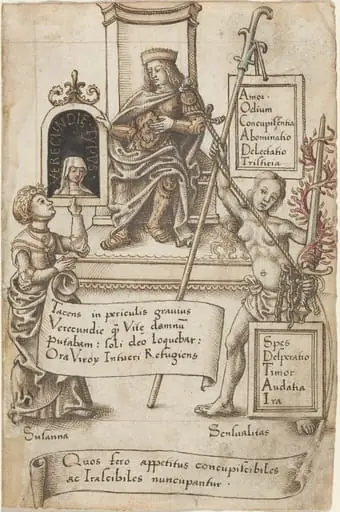 VERECUNDIE
Amor.
Odium
Concupisentia
Abominatio
Delectatio
Tristicia
Tacens in periculis grauius
Verecundie q̃ Vitę damnũ
Putabam: soli deo loquebar:
Ora Viroꝝ Intueri Refugiens
Spes
Desperatio
Timor
Audatia
Ira
Susanna
Sensualitas
Quos fero appetitus concupiscibiles
ac Irascibiles nuncupantur.